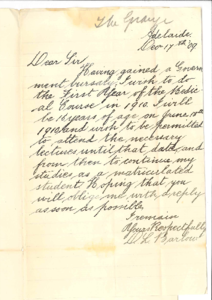 The Grange
Adelaide
Dec 17th 09
Dear Sir
Having gained a Govern
ment bursary, I wish to do
the First Year of the Medic
al Course in 1910. I will
be 16 years of age on June 18th
1910 and wish to be permitted
to attend the necessary
lectures until that date, and
from then to continue my
studies, as a matriculated
student. Hoping that you
will oblige me with a reply
as soon as possible
I remain
Yours Respectfully
Barlow